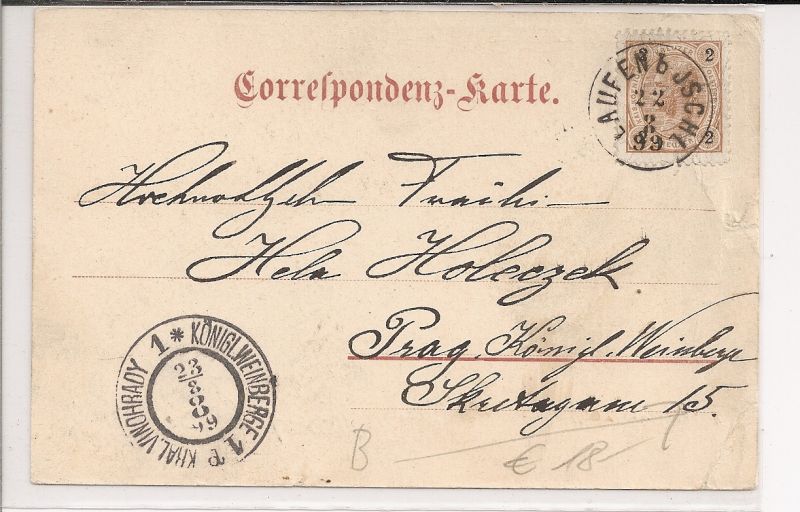 Correspondenz-Karte.
LAUFEN b JSCHL
22
8
99
2 2
2
Fräulein
Hela Holeczek
Prag, Königl. Weinberge
Skretagasse 15.
1 * KÖNIGL. WEINBERGE 1
KRÁL. VINOHRADY
23
8
8
99
B
€ 18-